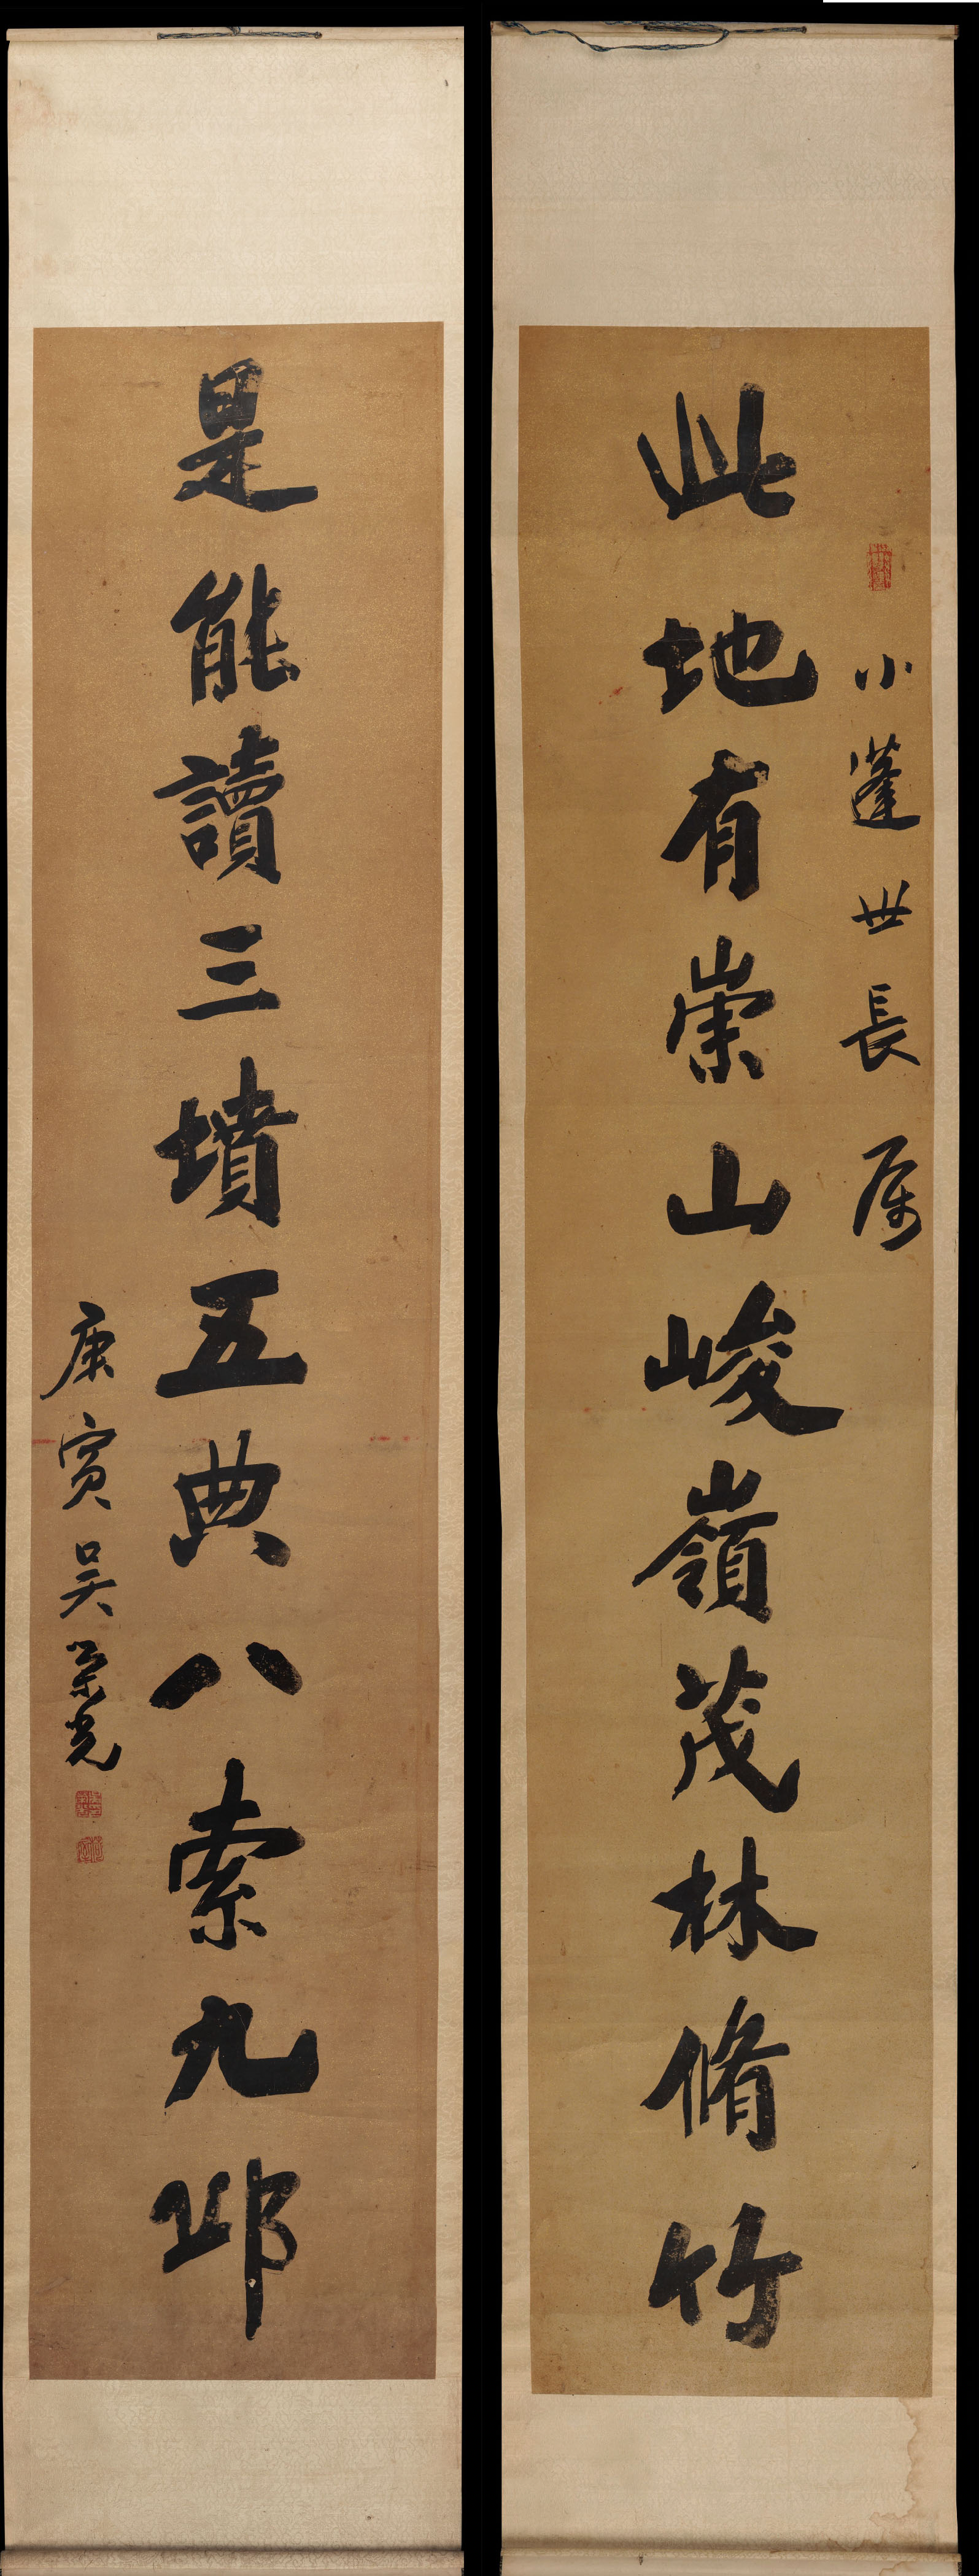 小蓬世長屬
此地有崇山峻嶺茂林脩竹
是能讀三墳五典八索九邱
庚寅吳榮光